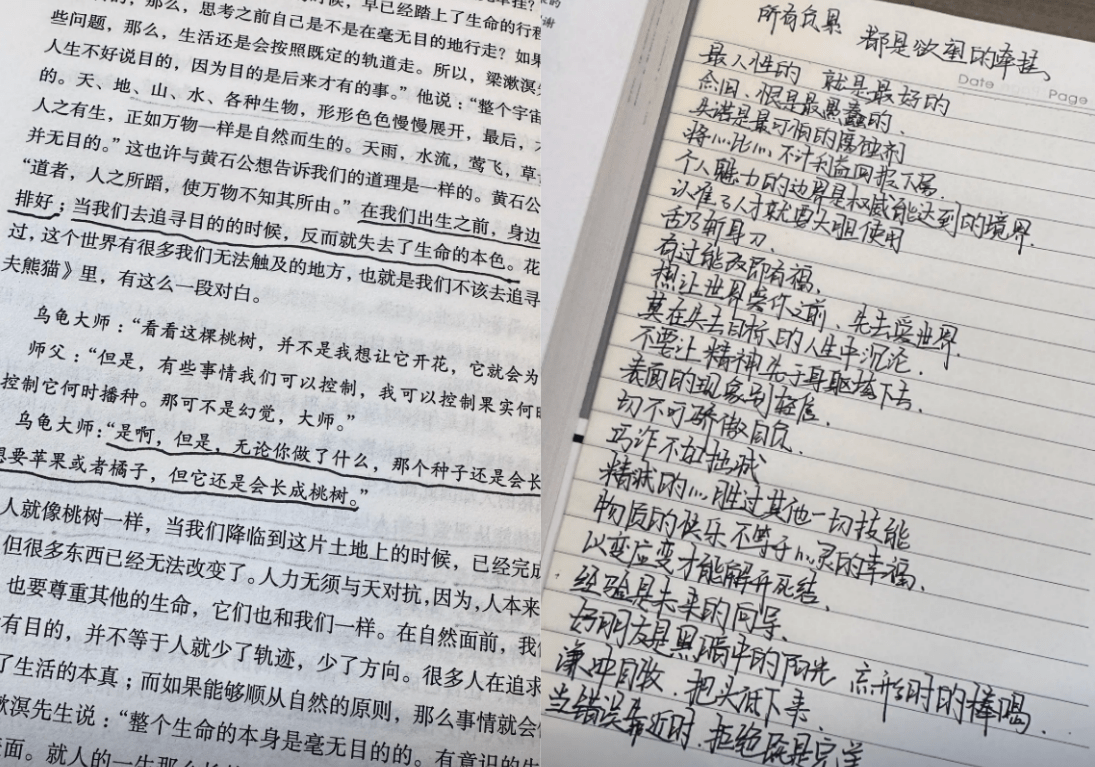 的，那么，思考之前自己是不是在毫无目的地行走？如果
些问题，那么，生活还是会按照既定的轨道走。所以，梁漱溟先
人生不好说目的，因为目的是后来才有的事。”他说：“整个宇宙
的。天、地、山、水、各种生物，形形色色慢慢展开，最后，才
人之有生，正如万物一样是自然而生的。天雨，水流，莺飞，草
并无目的。”这也许与黄石公想告诉我们的道理是一样的。黄石公
“道者，人之所蹈，使万物不知其所由。”在我们出生之前，身边
排好；当我们去追寻目的的时候，反而就失去了生命的本色。花
过，这个世界有很多我们无法触及的地方，也就是我们不该去追寻
夫熊猫》里，有这么一段对白。
乌龟大师：“看看这棵桃树，并不是我想让它开花，它就会为
师父：“但是，有些事情我们可以控制，我可以控制果实何时
控制它何时播种。那可不是幻觉，大师。”
乌龟大师：“是啊，但是，无论你做了什么，那个种子还是会长
想要苹果或者橘子，但它还是会长成桃树。”
人就像桃树一样，当我们降临到这片土地上的时候，已经完成
但很多东西已经无法改变了。人力无须与天对抗，因为，人本来
也要尊重其他的生命，它们也和我们一样。在自然面前，我们
有目的，并不等于人就少了轨迹，少了方向。很多人在追求
了生活的本真；而如果能够顺从自然的原则，那么事情就会
漱溟先生说：“整个生命的本身是毫无目的的。有意识的生
面。就人的一生那么长的
所有负累 都是欲望的牵挂、
Date Page
最人性的 就是最好的
念旧、恨是最愚蠢的、
失诺是最可怕的腐蚀剂
将心比心 不计利益回报下属、
个人魅力的边界是权威能达到的境界.
认准了人才就要大胆使用
舌乃斩身刀、
有过能改即有福、
想让世界爱你之前、先去爱世界.
莫在失去目标的人生中沉沦、
不要让精神先于身躯垮下去、
表面的现象别轻信、
切不可骄傲自负、
巧诈不如拙诚
精诚的心 胜过其他一切技能
物质的快乐不等于心灵的幸福、
以变应变才能解开死结、
经验是未来的向导、
好朋友是黑暗中的阳光 忘形时的棒喝、
谦冲自牧、把头低下来、
当错误靠近时、拒绝既是完美